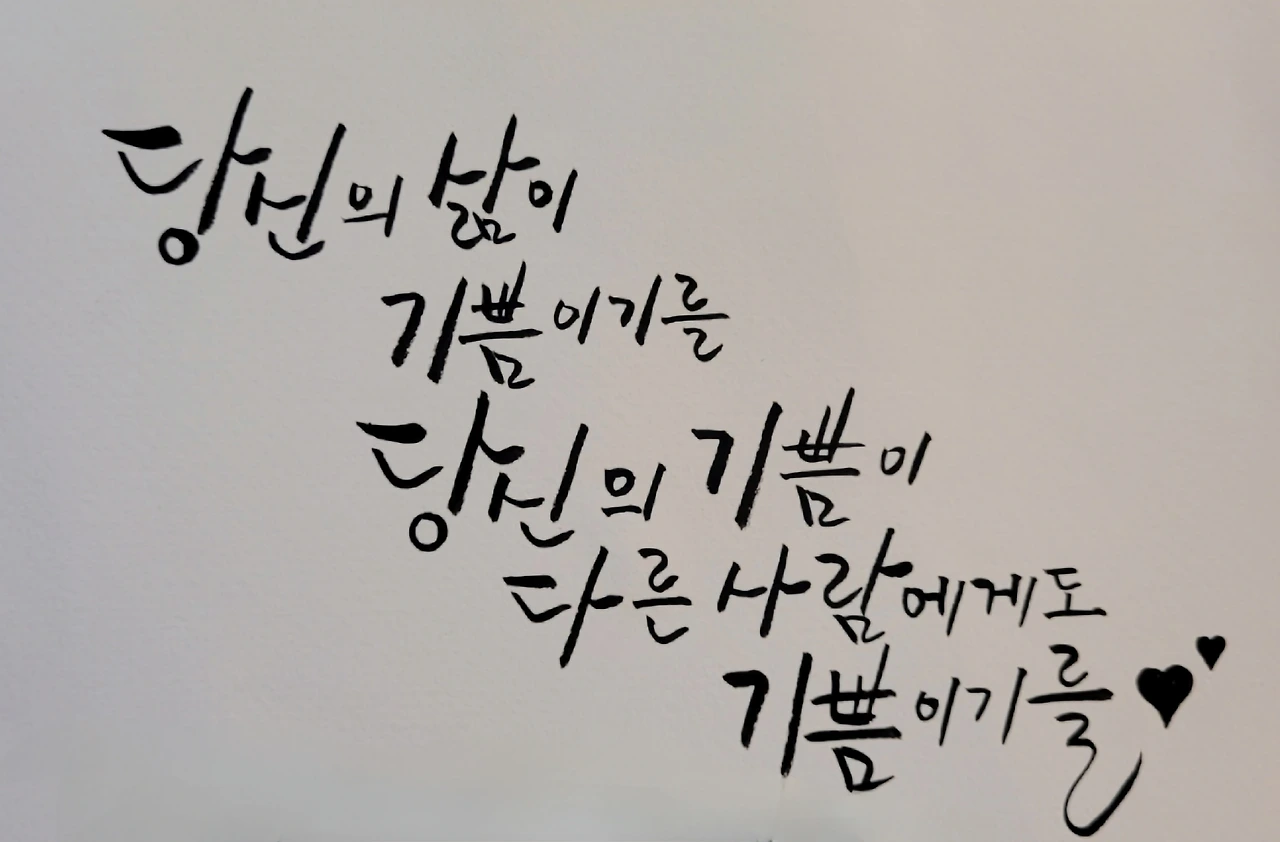 당신의 삶이
기쁨이기를
당신의 기쁨이
다른 사람에게도
기쁨이기를